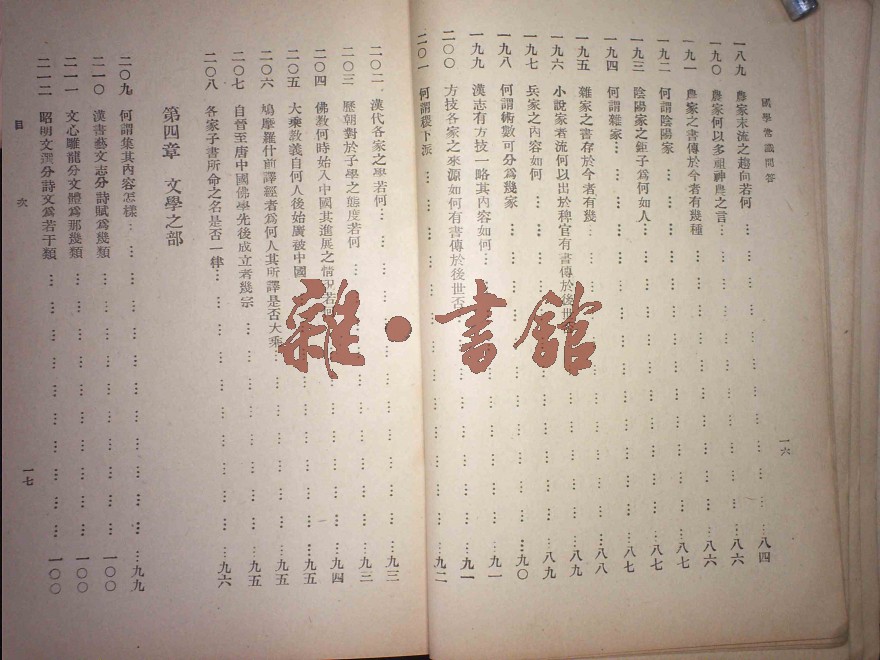 國學常識問答
一六
一八九 農家末流之趨向若何……八四
一九〇 農家何以多祖神農之言……八六
一九一 農家之書傳於今者有幾種……八六
一九二 何謂陰陽家……八七
一九三 陰陽家之鉅子爲何如人……八七
一九四 何謂雜家……八七
一九五 雜家之書存於今者有幾……八八
一九六 小說家者流何以出於稗官有書傳於後世……八九
一九七 兵家之內容如何……八九
一九八 何謂術數可分爲幾家……九〇
一九九 漢志有方技一略其內容如何……九一
二〇〇 方技各家之來源如何有書傳於後世否……九一
二〇一 何謂稷下派……九二
二〇二 漢代各家之學若何……九三
二〇三 歷朝對於子學之態度若何……九三
二〇四 佛教何時始入中國其進展之情況若……九四
二〇五 大乘教義自何人後始廣被中國……九五
二〇六 鳩摩羅什前譯經者爲何人其所譯是否大乘……九五
二〇七 自晉至唐中國佛學先後成立者幾宗……九五
二〇八 各家子書所命之名是否一律……九六
第四章 文學之部
二〇九 何謂集其內容怎樣……九九
二一〇 漢書藝文志分詩賦爲幾類……一〇〇
二一一 文心雕龍分文體爲那幾類……一〇〇
二一二 昭明文選分詩文爲若干類……一〇〇
目次
一七
雜·書館